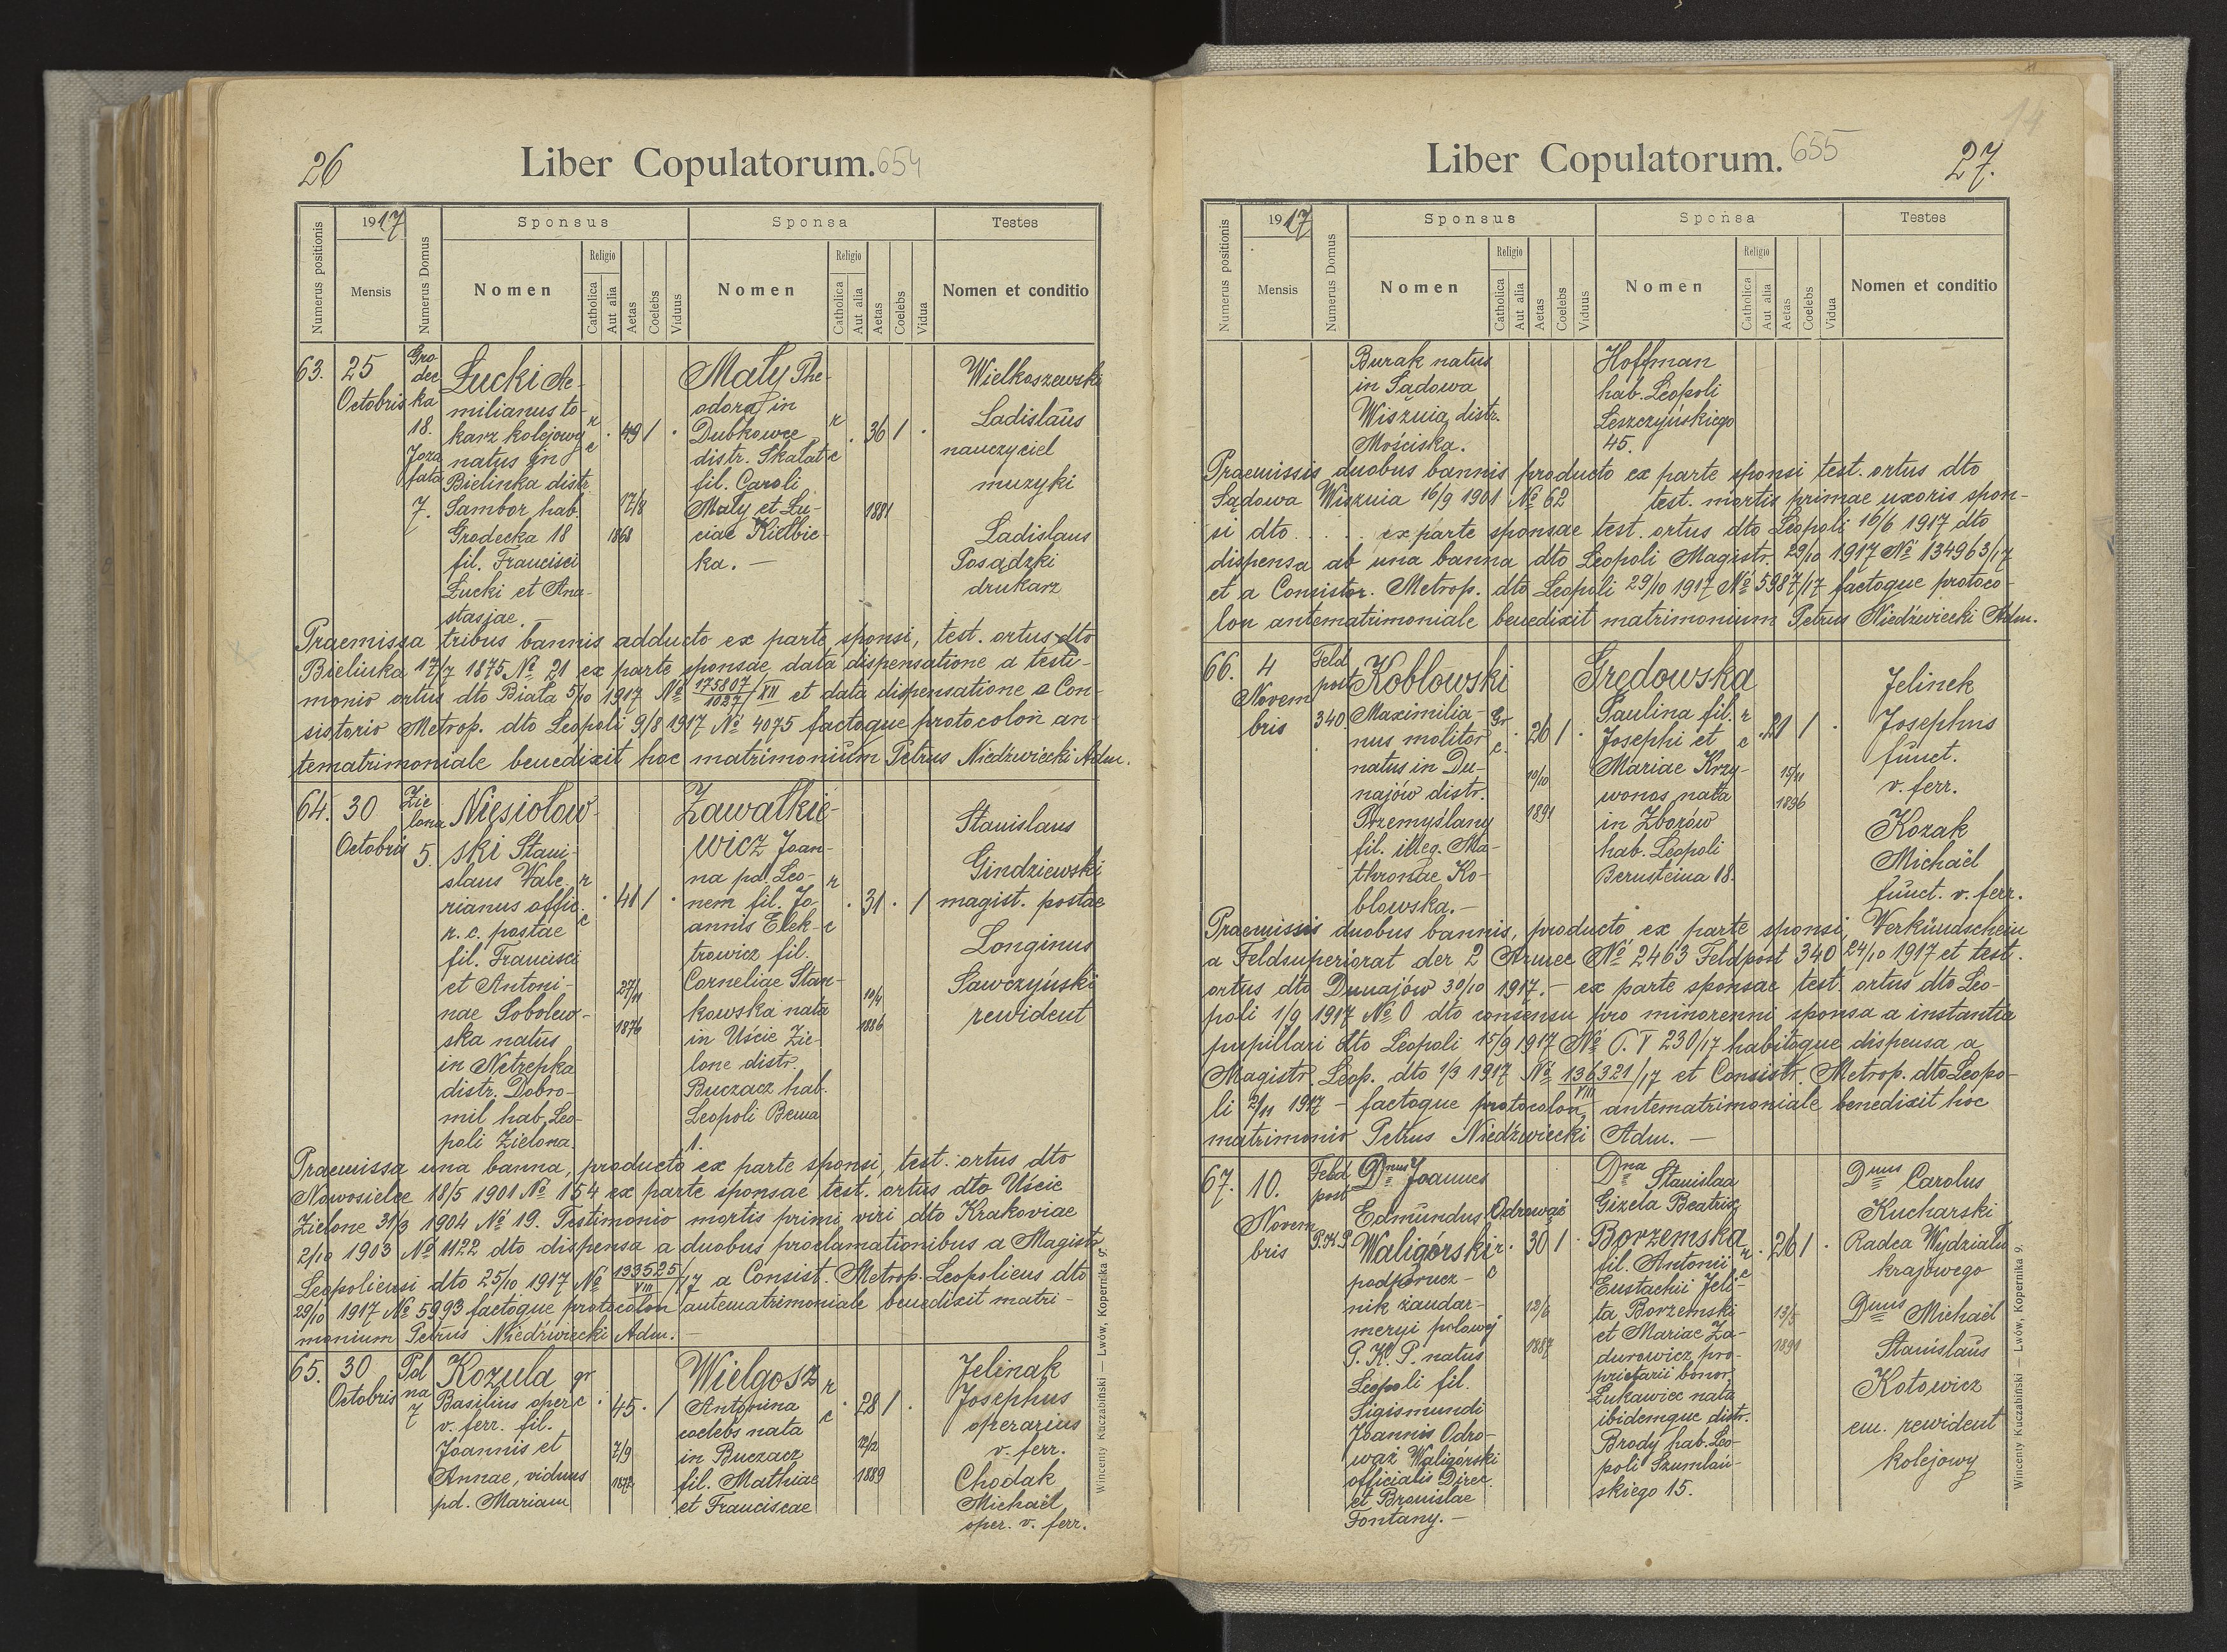 26
Liber Copulatorum. 654
Numerus positionis
1917
Mensis
Numerus Domus
Sponsus
Nomen
Religio
Catholica
Aut alia
Aetas
Coelebs
Viduus
Sponsa
Nomen
Religio
Catholica
Aut alia
Aetas
Coelebs
Vidua
Testes
Nomen et conditio
63.
25
Octobris
Gro
dec
ka
18.
Joza
fata
7.
Łucki Ae-
milianus to-
karz kolejowy
natus in
Bielinka distr.
Sambor hab.
Grodecka 18
fil. Francisci
Łucki et Ana-
stasiae.
r
c
49 /
17/8
1868
Mały The-
odora in
Dubkowce
distr. Skałat
fil. Caroli
Mały et Lu-
ciae Kiełbic-
ka. —
r
c
36 /
1881
Wielkoszewski
Ladislaus
nauczyciel
muzyki
Ladislaus
Posądzki
drukarz
Praemissa tribus bannis adducto ex parte sponsi, test. ortus dto
Bielinka 17/7 1875 № 21 ex parte sponsae data dispensatione a testi-
monio ortus dto Biała 5/10 1917 № 175807/1027/XII et data dispensatione a Con-
sistorio Metrop. dto Leopoli 9/8 1917 № 4075 factoque protocolon an-
tematrimoniale benedixit hoc matrimonium Petrus Niedźwiecki Adm.
64.
30
Octobris
Zie
lona
5.
Niesiołow-
ski Stani-
slaus Vale-
rianus offic.
r. c. postae
fil. Francisci
et Antoni-
nae Sobolew-
ska natus
in Netrepka
distr. Dobro-
mil hab. Leo-
poli Zielona.
r
c
41 /
27/11
1876
Zawałkie-
wicz Joan-
na pd. Leo-
nem fil. Jo-
annis Elek-
trowicz fil.
Corneliae Stan-
kowska nata
in Uście Zie-
lone distr.
Buczacz hab.
Leopoli Bema
1.
r
c
31 . /
10/4
1886
Stanislaus
Gindziewski
magist. postae
Longinus
Sawczyński
rewident
Praemissa una banna, producto ex parte sponsi, test. ortus dto
Nowosielce 18/5 1901 № 154 ex parte sponsae test. ortus dto Uście
Zielone 31/3 1904 № 19. Testimonio mortis primi viri dto Krakoviae
2/10 1903 № 1122 dto dispensa a duobus proclamationibus a Magistr.
Leopoliensi dto 25/10 1917 № 133525/VIII/17 a Consist. Metrop. Leopoliens dto
29/10 1917 № 5993 factoque protocolon antematrimoniale benedixit matri-
monium Petrus Niedźwiecki Adm. —
65.
30
Octobris
Pol
na
7
Kozula
Basilius oper.
v. ferr. fil.
Joannis et
Annae, viduus
pd. Mariam
gr
c
45 . /
7/9
1872
Wielgosz
Antonina
coelebs nata
in Buczacz
fil. Mathiae
et Franciscae
r
c
28 /
12/2
1889
Jelinak
Josephus
operarius
v. ferr.
Chodak
Michaël
oper. v. ferr.
Wincenty Kuczabiński — Lwów, Kopernika 9.
14
Liber Copulatorum. 655
27.
Numerus positionis
1917
Mensis
Numerus Domus
Sponsus
Nomen
Religio
Catholica
Aut alia
Aetas
Coelebs
Viduus
Sponsa
Nomen
Religio
Catholica
Aut alia
Aetas
Coelebs
Vidua
Testes
Nomen et conditio
Burak natus
in Sądowa
Wisznia distr.
Mościska.
Hoffman
hab. Leopoli
Leszczyńskiego
45.
Praemissis duobus bannis producto ex parte sponsi test. ortus dto
Sądowa Wisznia 16/9 1901 № 62 test. mortis primae uxoris spon-
si dto . . . . ex parte sponsae test. ortus dto Leopoli 16/6 1917 dto
dispensa ab una banna dto Leopoli Magistr. 29/10 1917 № 134963/17
et a Consistor. Metrop. dto Leopoli 29/10 1917 № 5987/17 factoque protoco-
lon antematrimoniale benedixit matrimonium Petrus Niedźwiecki Adm.
66.
4
Novem
bris
Feld
post
340
Kobłowski
Maximilia-
nus molitor
natus in Du-
najów distr.
Przemyślany
fil. illeg. Ma-
thronae Ko-
błowska.—
Gr.
c.
26 /
10/10
1891
Grędowska
Paulina fil.
Josephi et
Mariae Krzy-
wonos nata
in Zborów
hab. Leopoli
Bernsteina 18.
r
c
21 /
15/11
1896
Jelinek
Josephus
funct.
v. ferr.
Kozak
Michaël
funct. v. ferr.
Praemissis duobus bannis, producto ex parte sponsi, Verkündschein
a Feldsuperiorat der 2 Armee № 2463 Feldpost 340 24/10 1917 et test.
ortus dto Dunajów 30/10 1917.— ex parte sponsae test. ortus dto Leo-
poli 1/9 1917 № 0 dto consensu pro minorenni sponsa a instantia
pupillari dto Leopoli 15/9 1917 № P. V 230/17 habitoque dispensa a
Magistr. Leop. dto 1/3 1917 № 136321/VIII/17 et Consistr. Metrop. dto Leopo-
li 2/11 1917 — factoque protocolon antematrimoniale benedixit hoc
matrimonio Petrus Niedźwiecki Adm. —
67.
10.
Novem
bris
Feld
post
P.K.P
Dnus Joannes
Edmundus Odrowąż
Waligórski
podporucz-
nik żandar-
meryi polowej
P. K. P. natus
Leopoli fil.
Sigismundi
Joannis Odro-
wąż Waligórski
officialis Direc.
et Bronislae
Fontany.—
r.
c
30 /
12/6
1887
Dna Stanislaa
Gizela Beatrix
Borzemska
fil. Antonii
Eustachii Jeli-
ta Borzemski
et Mariae Za-
durowicz, pro-
prietarii bonor.
Łukawiec nata
ibidemque distr.
Brody hab. Leo-
poli Szumlań-
skiego 15.
r
c
26 /
13/5
1891
Dnus Carolus
Kucharski
Radca Wydziału
krajowego
Dnus Michaël
Stanislaus
Kotowicz
em. rewident
kolejowy
Wincenty Kuczabiński — Lwów, Kopernika 9.